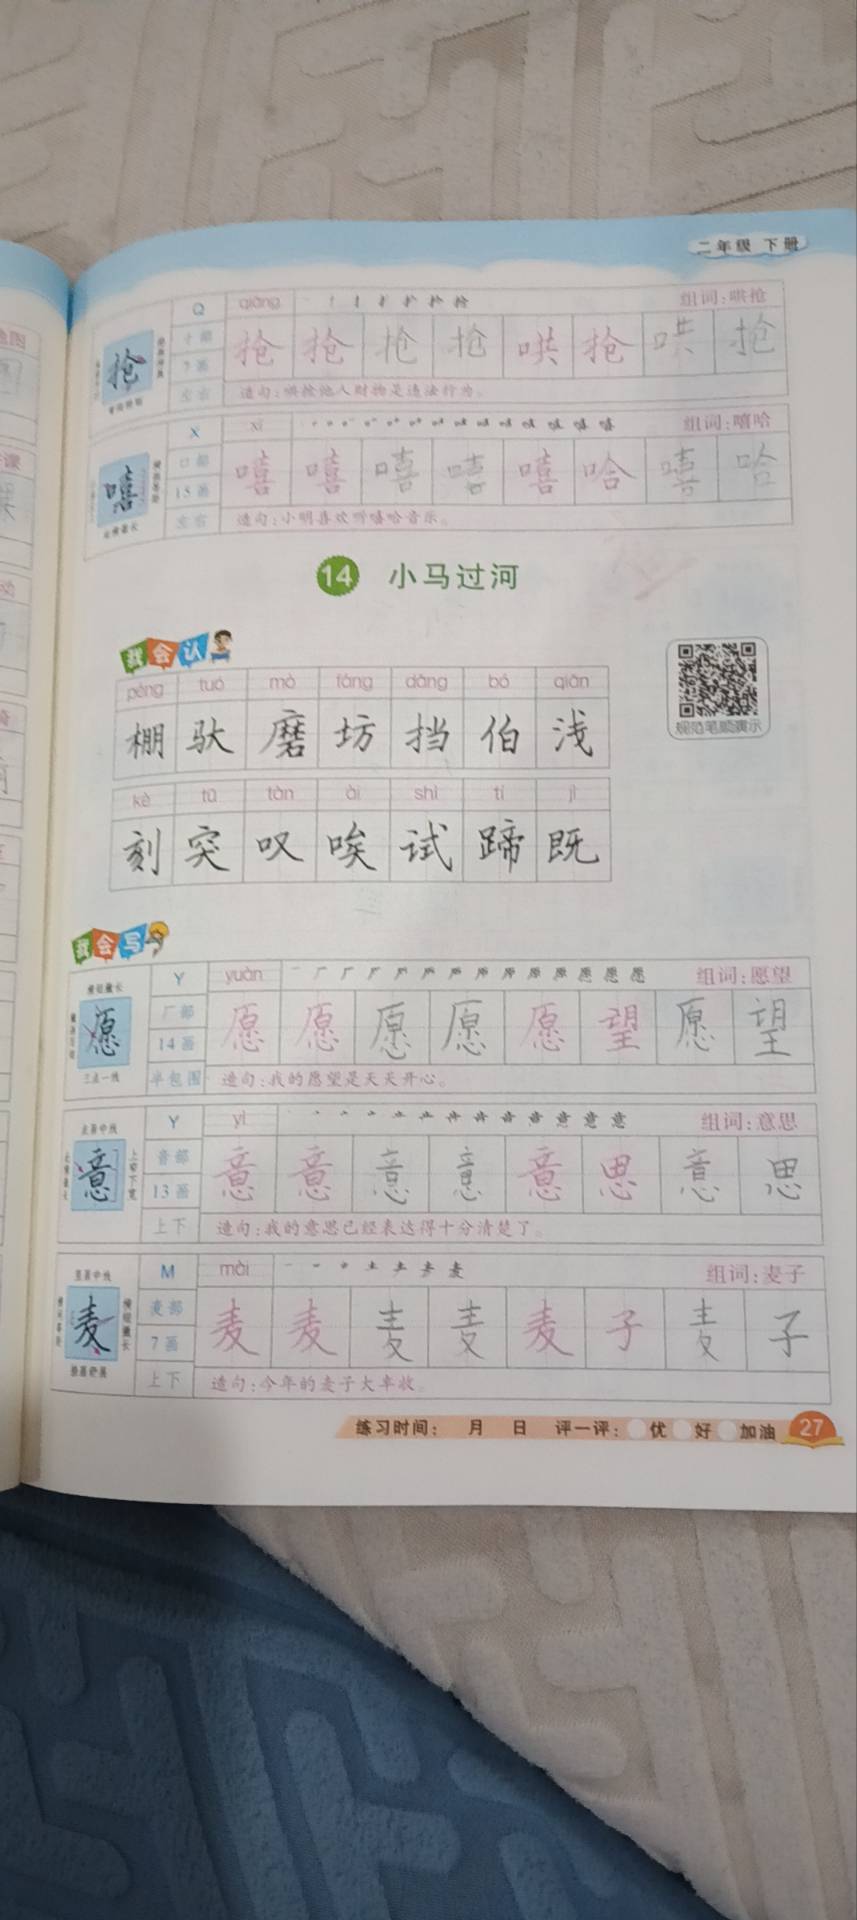 二年级 下册
Q qiāng 组词:哄抢
抢 扌部 抢 抢 抢 抢 哄 抢 哄 抢
7画
左右 造句:哄抢他人财物是违法行为。
X xī 组词:嘻哈
嘻 口部 嘻 嘻 嘻 嘻 嘻 哈 嘻 哈
15画
左右 造句:小明喜欢听嘻哈音乐。
14 小马过河
我会认
péng tuó mò fáng dǎng bó qiǎn
棚 驮 磨 坊 挡 伯 浅
规范笔顺演示
kè tū tàn āi shì tí jì
刻 突 叹 唉 试 蹄 既
我会写
Y yuàn 组词:愿望
愿 厂部 愿 愿 愿 愿 愿 望 愿 望
14画
三点一线 半包围 造句:我的愿望是天天开心。
Y yì 组词:意思
意 音部 意 意 意 意 意 思 意 思
13画
上下 造句:我的意思已经表达得十分清楚了。
M mài 组词:麦子
麦 麦部 麦 麦 麦 麦 麦 子 麦 子
7画
上下 造句:今年的麦子大丰收。
练习时间: 月 日 评一评: 优 好 加油 27